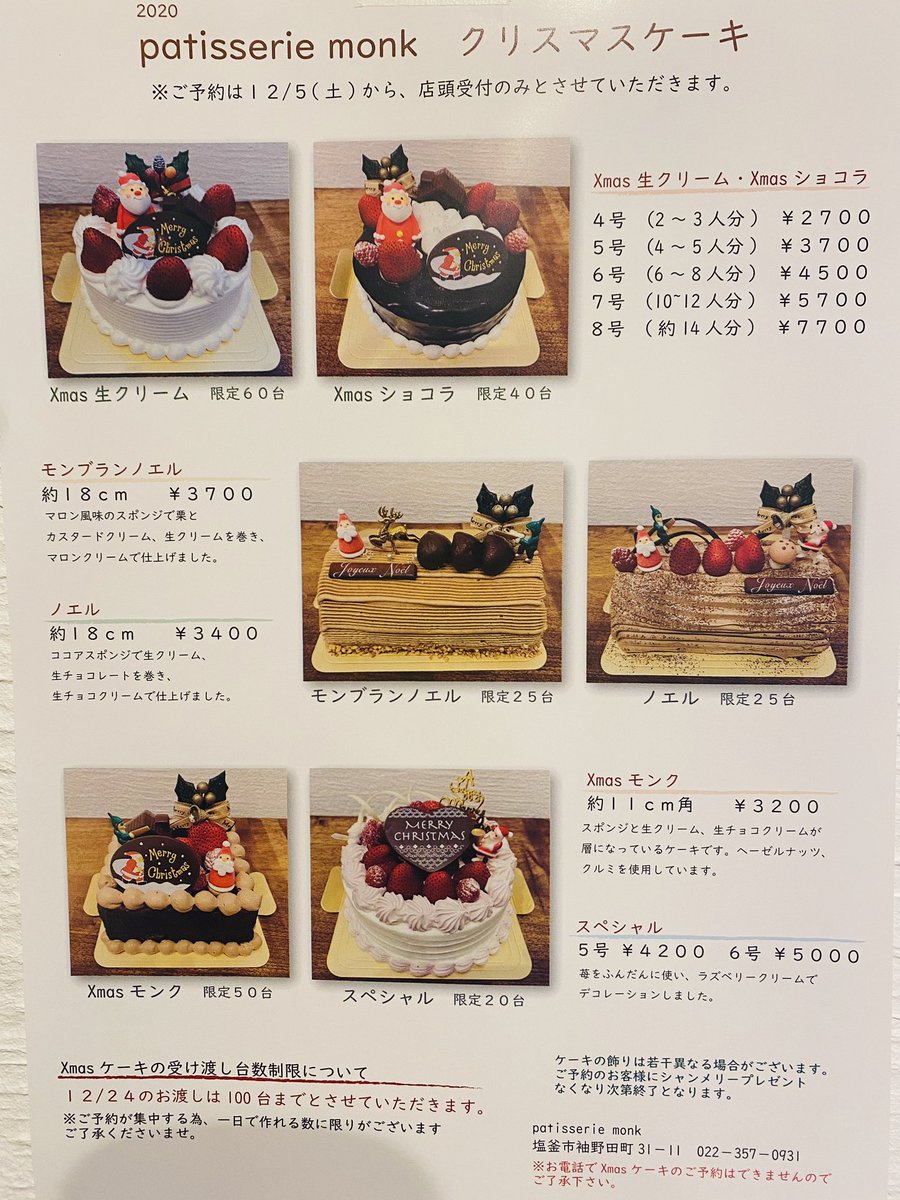 2020
patisserie monk クリスマスケーキ
※ご予約は１２/５(土)から、店頭受付のみとさせていただきます。
Merry Christmas
Merry Christmas
Xmas 生クリーム 限定６０台
Xmas ショコラ 限定４０台
Xmas 生クリーム・Xmas ショコラ
４号 （２～３人分） ￥２７００
５号 （４～５人分） ￥３７００
６号 （６～８人分） ￥４５００
７号 （10~12人分） ￥５７００
８号 （約14人分） ￥７７００
モンブランノエル
約１８ｃｍ ￥３７００
マロン風味のスポンジで栗と
カスタードクリーム、生クリームを巻き、
マロンクリームで仕上げました。
ノエル
約１８ｃｍ ￥３４００
ココアスポンジで生クリーム、
生チョコレートを巻き、
生チョコクリームで仕上げました。
Joyeux Noël
Joyeux Noël
モンブランノエル 限定２５台
ノエル 限定２５台
Merry Christmas
MERRY CHRISTMAS
Xmas モンク 限定５０台
スペシャル 限定２０台
Xmas モンク
約１１ｃｍ角 ￥３２００
スポンジと生クリーム、生チョコクリームが
層になっているケーキです。ヘーゼルナッツ、
クルミを使用しています。
スペシャル
５号 ￥４２００ ６号 ￥５０００
苺をふんだんに使い、ラズベリークリームで
デコレーションしました。
Xmas ケーキの受け渡し台数制限について
１２/２４のお渡しは 100 台までとさせていただきます。
※ご予約が集中する為、一日で作れる数に限りがございます
ご了承くださいませ。
ケーキの飾りは若干異なる場合がございます。
ご予約のお客様にシャンメリープレゼント
なくなり次第終了となります。
patisserie monk
塩釜市袖野田町 31－11 022－357－0931
※お電話で Xmas ケーキのご予約はできませんので
ご了承下さい。